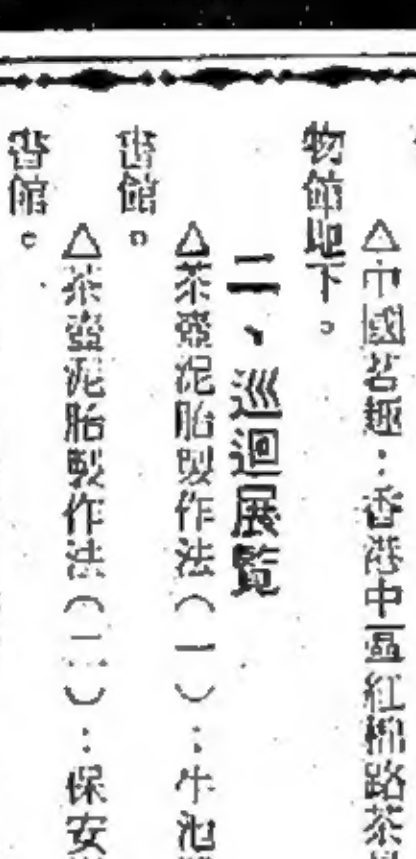 △中國茗趣：香港中區紅棉路茶
物館地下。
二、巡迴展覽
△茶壺泥胎製作法（一）：牛池
書館。
△茶壺泥胎製作法（二）：保安
書館。